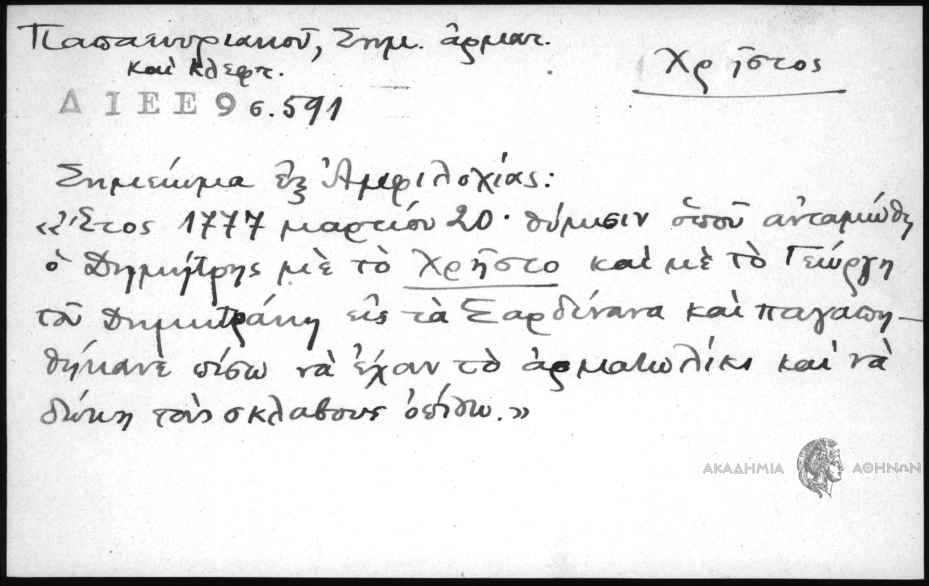 Παπακυριακοῦ, Σημ. ἁρματ.
καὶ κλεφτ.
Χρῆστος
ΔΙΕΕ 9 σ. 591
Σημείωμα ἐξ Ἀμφιλοχίας:
«Ἔτος 1777 μαρτίου 20· θύμισιν ὁποῦ ἀνταμώθη
ὁ Δημήτρης μὲ τὸ Χρῆστο καὶ μὲ τὸ Γεώργη
τοῦ Δημητράκη εἰς τὰ Σαρδίνανα καὶ παγαπη-
θήκανε πίσω νὰ ἔχαν τὸ ἁρματωλίκι καὶ νὰ
δώκη τοὺς σκλάβους ὀπίσω.»
ΑΚΑΔΗΜΙΑ ΑΘΗΝΩΝ